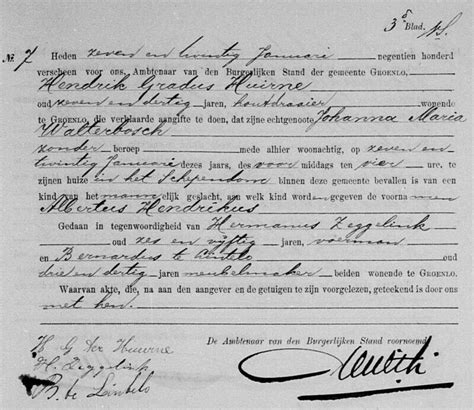 3e Blad.
№ 7 Heden zeven en twintig Januari negentien honderd
verscheen voor ons, Ambtenaar van den Burgerlijken Stand der gemeente GROENLO,
Hendrik Gradus Huirne
oud zeven en dertig jaren, houtdraaier wonende
te GROENLO, die verklaarde aangifte te doen, dat zijne echtgenoot Johanna Maria
Walterbosch
zonder beroep mede alhier woonachtig, op zeven en
twintig Januari dezes jaars, des voor middags ten vier ure, te
zijnen huize in het Schependom binnen deze gemeente bevallen is van een
kind van het mannelijk geslacht, aan welk kind worden gegeven de voornamen
Albertus Hendrikus
Gedaan in tegenwoordigheid van Hermanus Zeggelink
oud zes en vijftig jaren, voerman
en Bernardus te Lintelo oud
drie en dertig jaren meubelmaker beiden wonende te GROENLO.
Waarvan akte, die, na aan den aangever en de getuigen te zijn voorgelezen, geteekend is door ons
met hen.
De Ambtenaar van den Burgerlijken Stand voornoemd,
H G ter Huurne
H. Zeggelink
B. te Lintelo